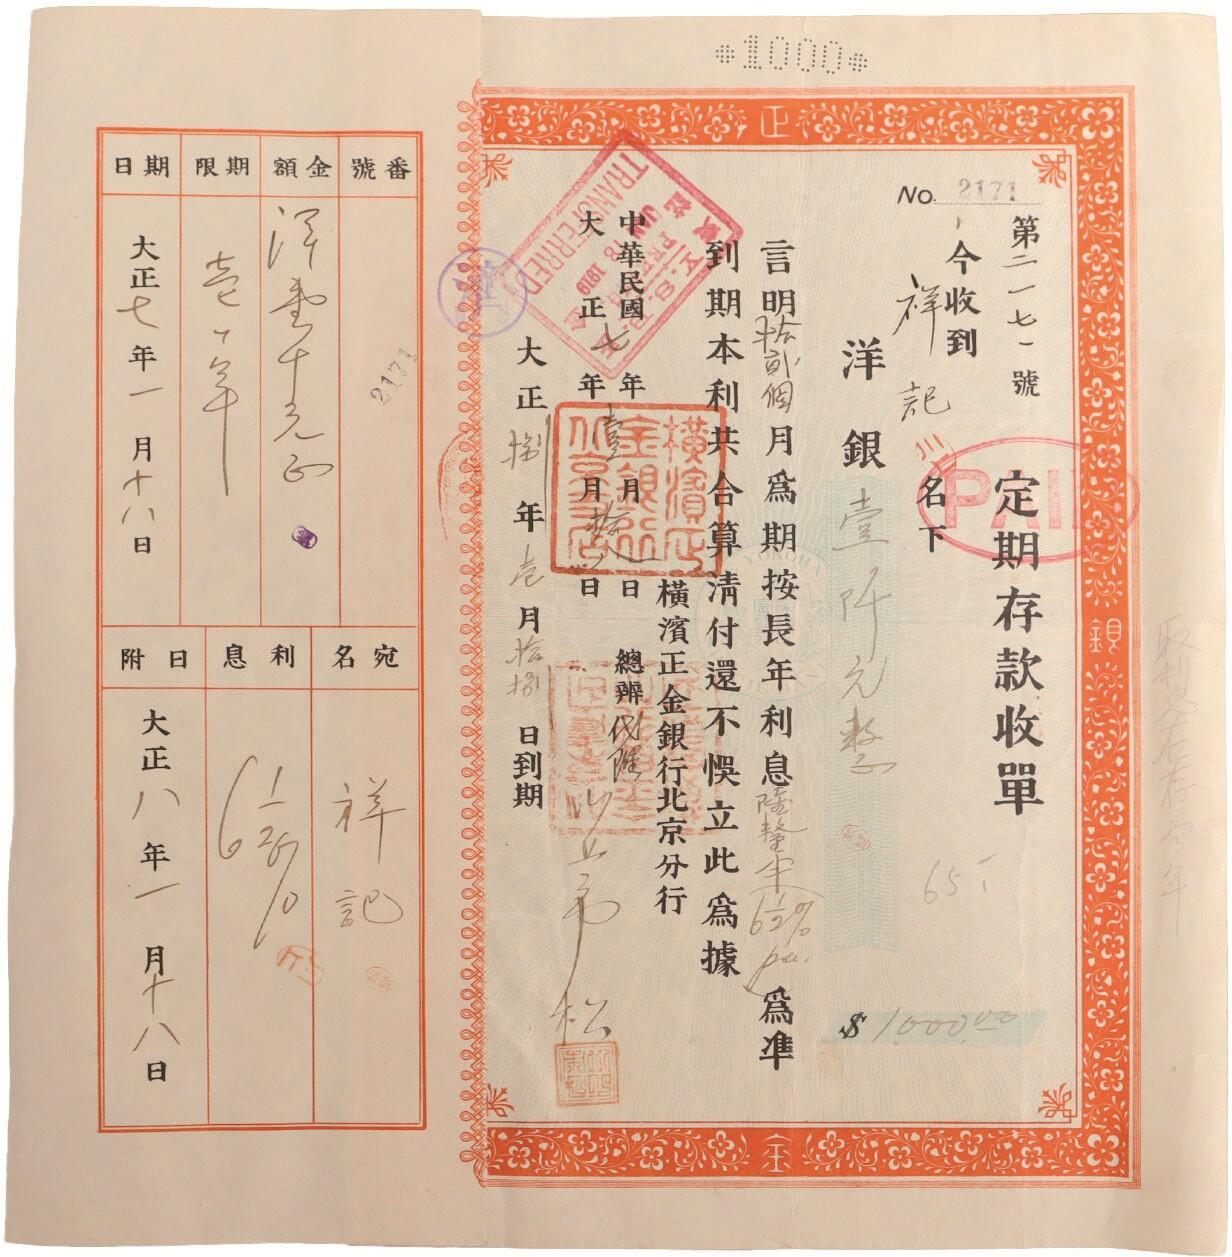 *1000*
正
No. 2171
第二一七一號
定期存款收單
今收到
祥記 名下
洋銀壹阡元整
$ 1,000.00
言明拾貳個月為期按長年利息陸釐半 6½% p.a. 為準
到期本利共合算清付還不悞立此為據
橫濱正金銀行北京分行
中華民國七年壹月拾八日 總辦代理
大正七年壹月拾八日
大正捌年壹月拾捌日到期
PAID
TRANSFERRED
JAN 18 1919
Y.S.B.
橫濱正金銀行
銀
金
65
番號
2171
金額
洋壹千元正
期限
壹ヶ年
日期
大正七年一月十八日
宛名
祥記
利息
6½%
日附
大正八年一月十八日